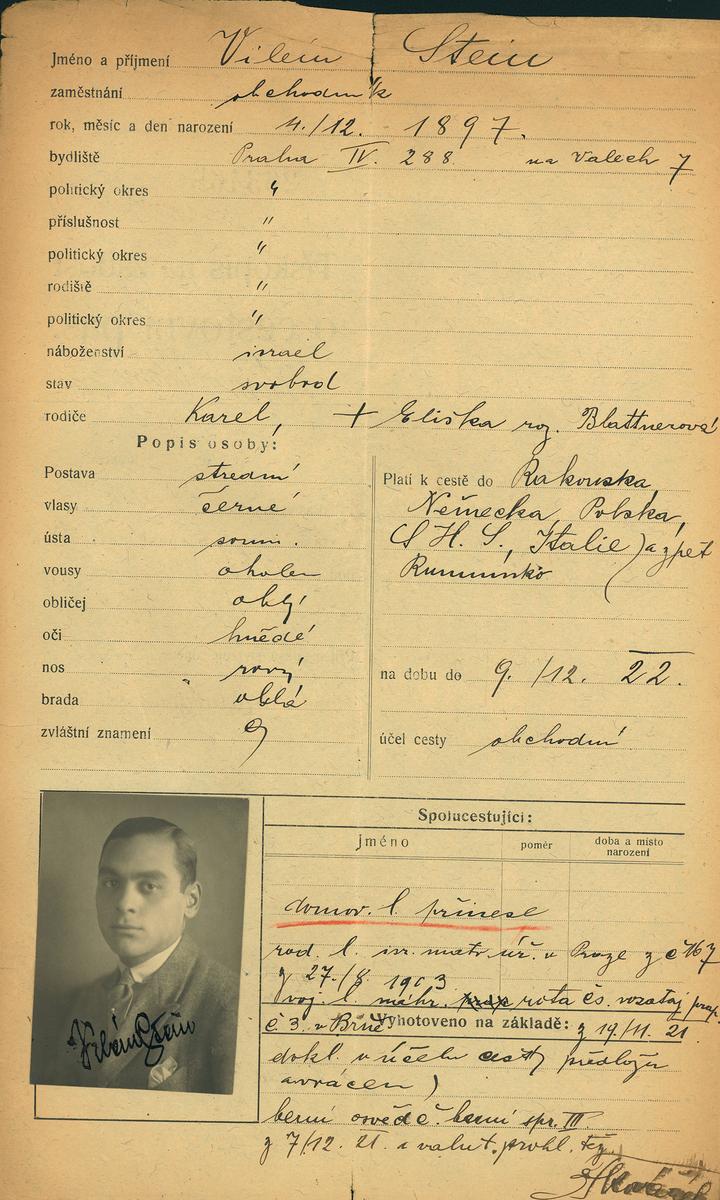 Jméno a příjmení Vilém Stein
zaměstnání obchodník
rok, měsíc a den narození 4./12. 1897.
bydliště Praha IV. 288 na Valech 7
politický okres "
příslušnost "
politický okres "
rodiště "
politický okres "
náboženství israel
stav svobod
rodiče Karel, + Eliška roz. Blattnerová
Popis osoby:
Postava střední
vlasy černé
ústa soum.
vousy oholen
obličej oblý
oči hnědé
nos rovný
brada oblá
zvláštní znamení
Platí k cestě do Rakouska,
Německa, Polska,
S H. S., Italie) a zpět
Rumunsko
na dobu do 9. /12. 22.
účel cesty obchodní
Spolucestující:
jméno poměr doba a místo narození
domov. l. přinese
rod. l. isr. matr. úř. v Praze z č 167
z 27./8. 1913
voj. l. náhr. rota čs. vozataj. prap.
č. 3. v Brně Vyhotoveno na základě: z 19/11. 21.
dokl. o účelu cesty předložen
a vrácen)
berní osvědč. berní spr. III.
z 7/12. 21. s valut. prohl. těž
Vilém Stein